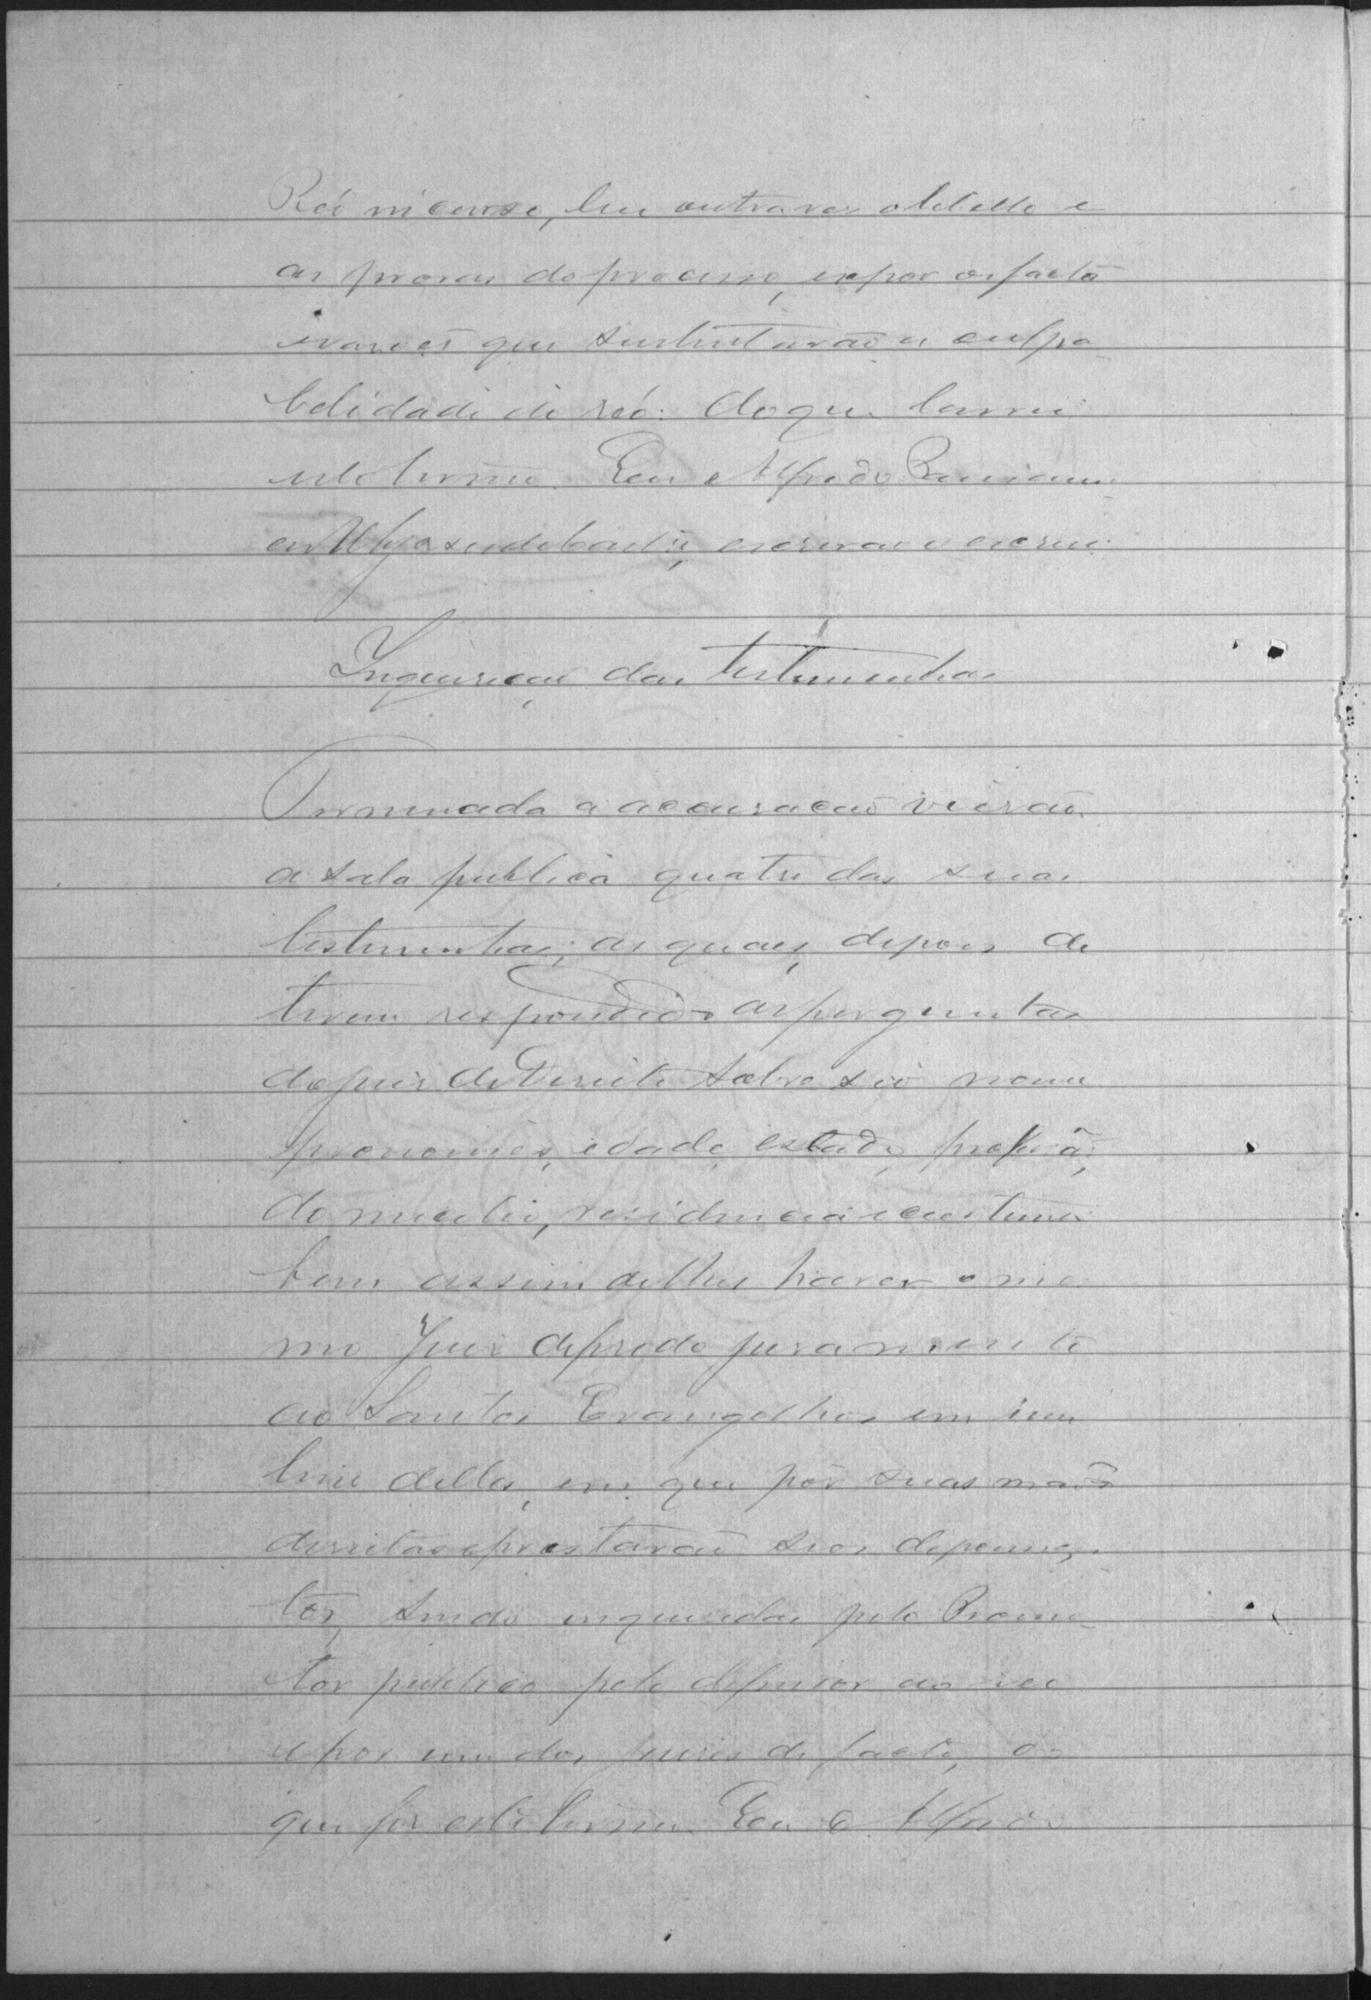 Reó incurso, leu outra vez o libello e
as provas do processo, expor os factos
e razões que sustentavão a culpa
belidade do reó. do que lavrei
este termo. Eu Alfredo
escrivão o escrevi
Inquirição das testemunhas
Terminada a accusação vierão
a sala publica quatro das suas
testemunhas, as quaes, depois de
terem respondido as perguntas
do juis de Direito sobre seó nome
pronomes, edade, estado, profissão,
domicilio, residencia e costumes
bem assim de lhes haver o mes
mo Juis deferido juramento
aos Santos Evangelhos em um
livro delles, em que por suas mãos
direitas e prestarão seos depoimen
tos, sendo enqueridas pelo Promo
tor publico pelo defensor do reo
e por um dos juises de facto, do
que fis este termo. Eu Alfredo